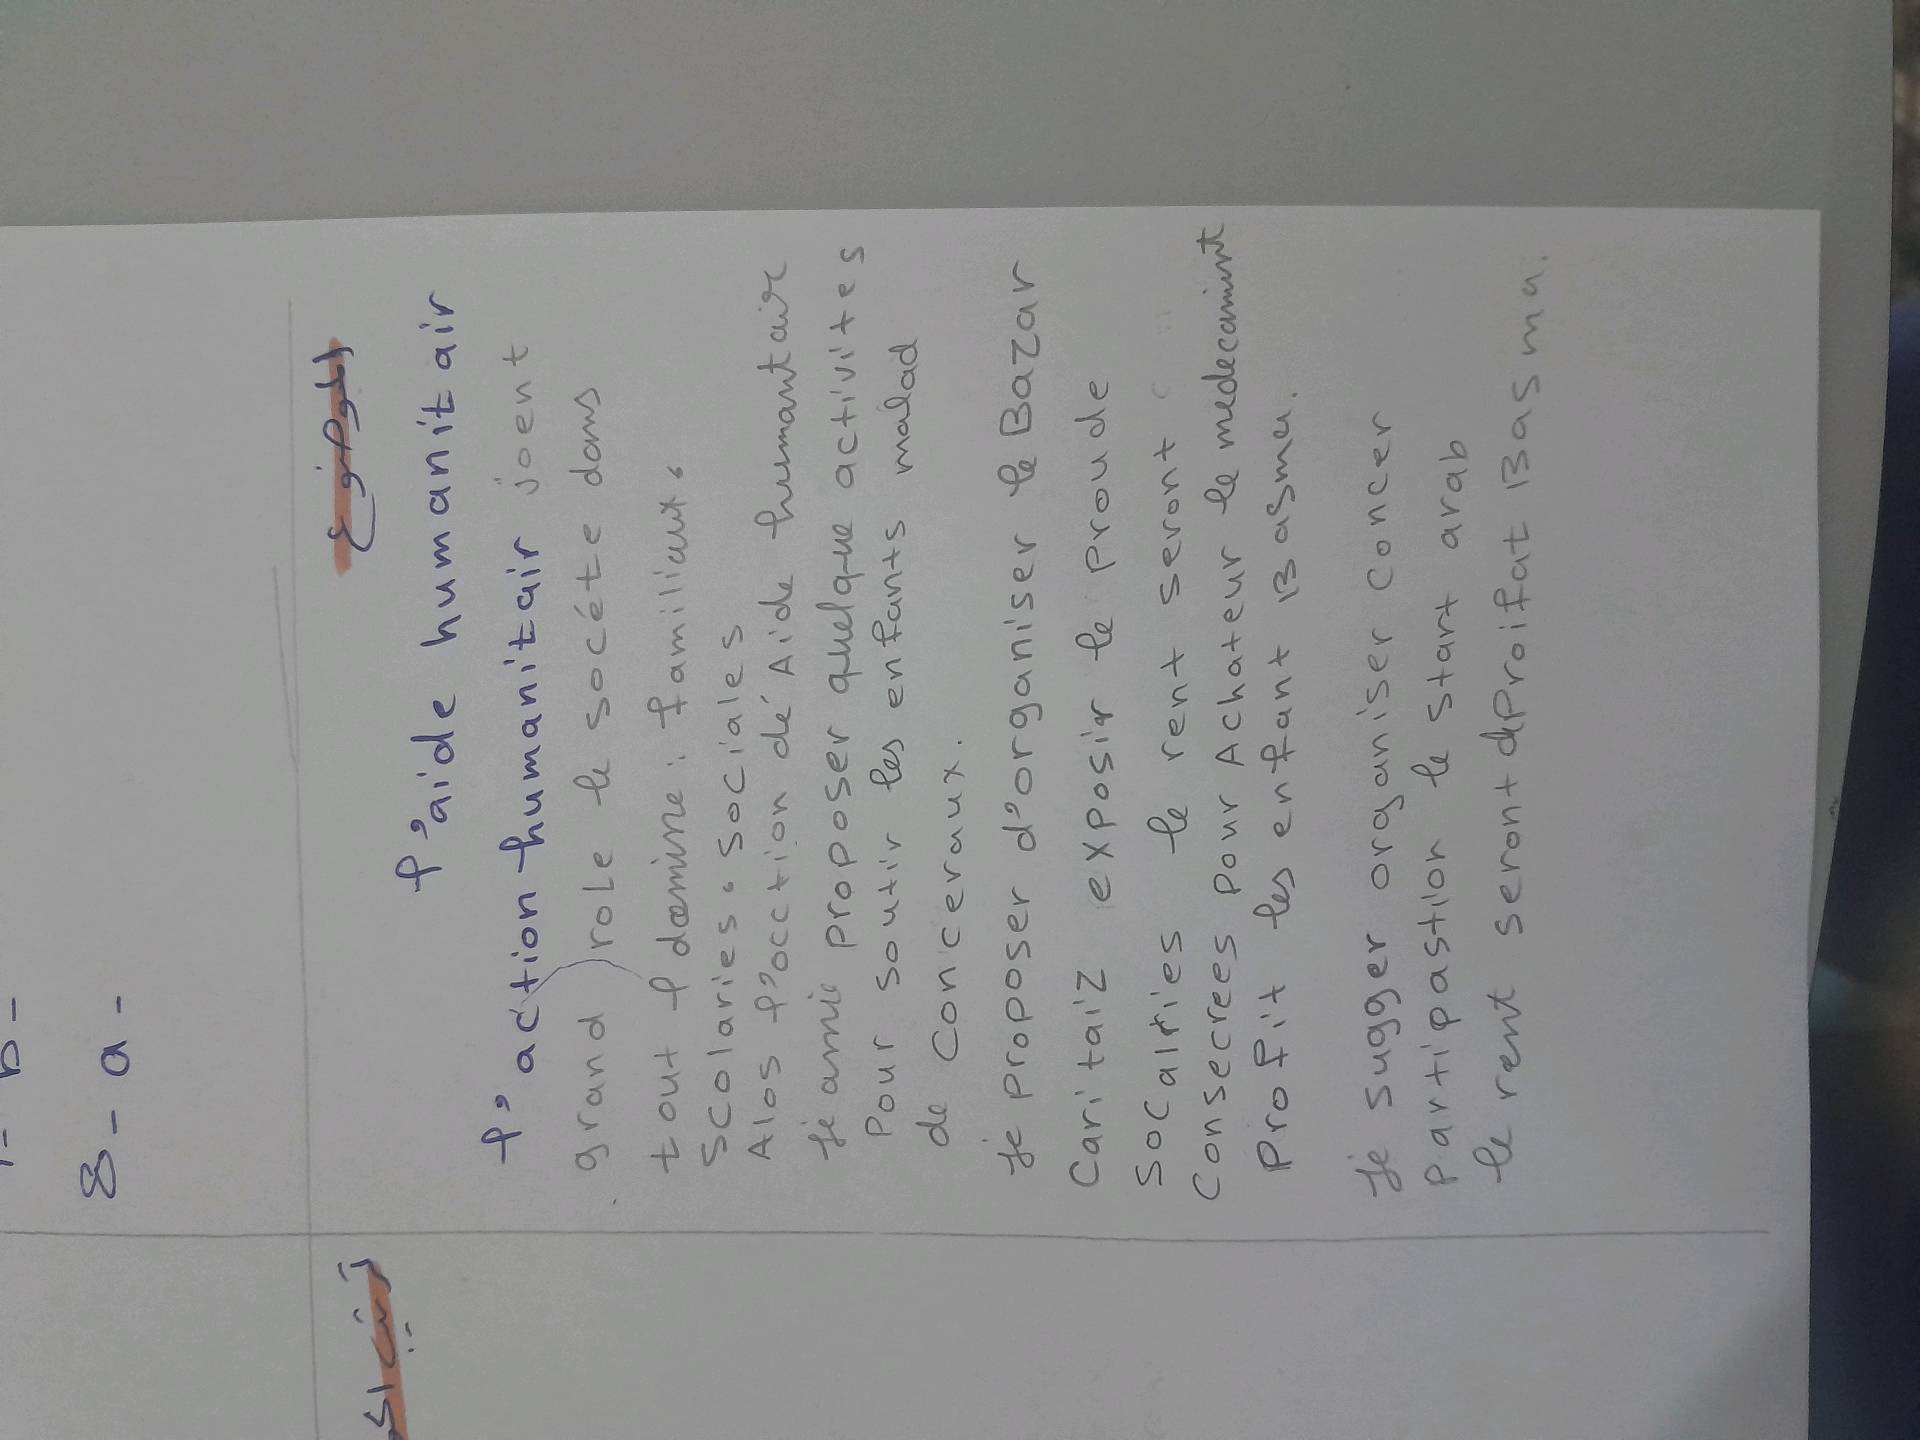 8 - a -
الموضوع
l'aide humanitair
l'action humanitair joent
grand role le socéte dans
tout l domine : familiaux.
Scolaries. sociales
Alos l'ocction dé Aide humantair
je amie proposer quelque activites
Pour soutir les enfants malad
de conceraux.
je proposer d'organiser le Bazar
Caritaiz exposir le proude
Socalries le rent seront
Consecrees pour Achateur le medecamint
Profit les enfant Basma.
je sugger organiser concer
Partipastion le start arab
le rent seront d Proifat Basma.